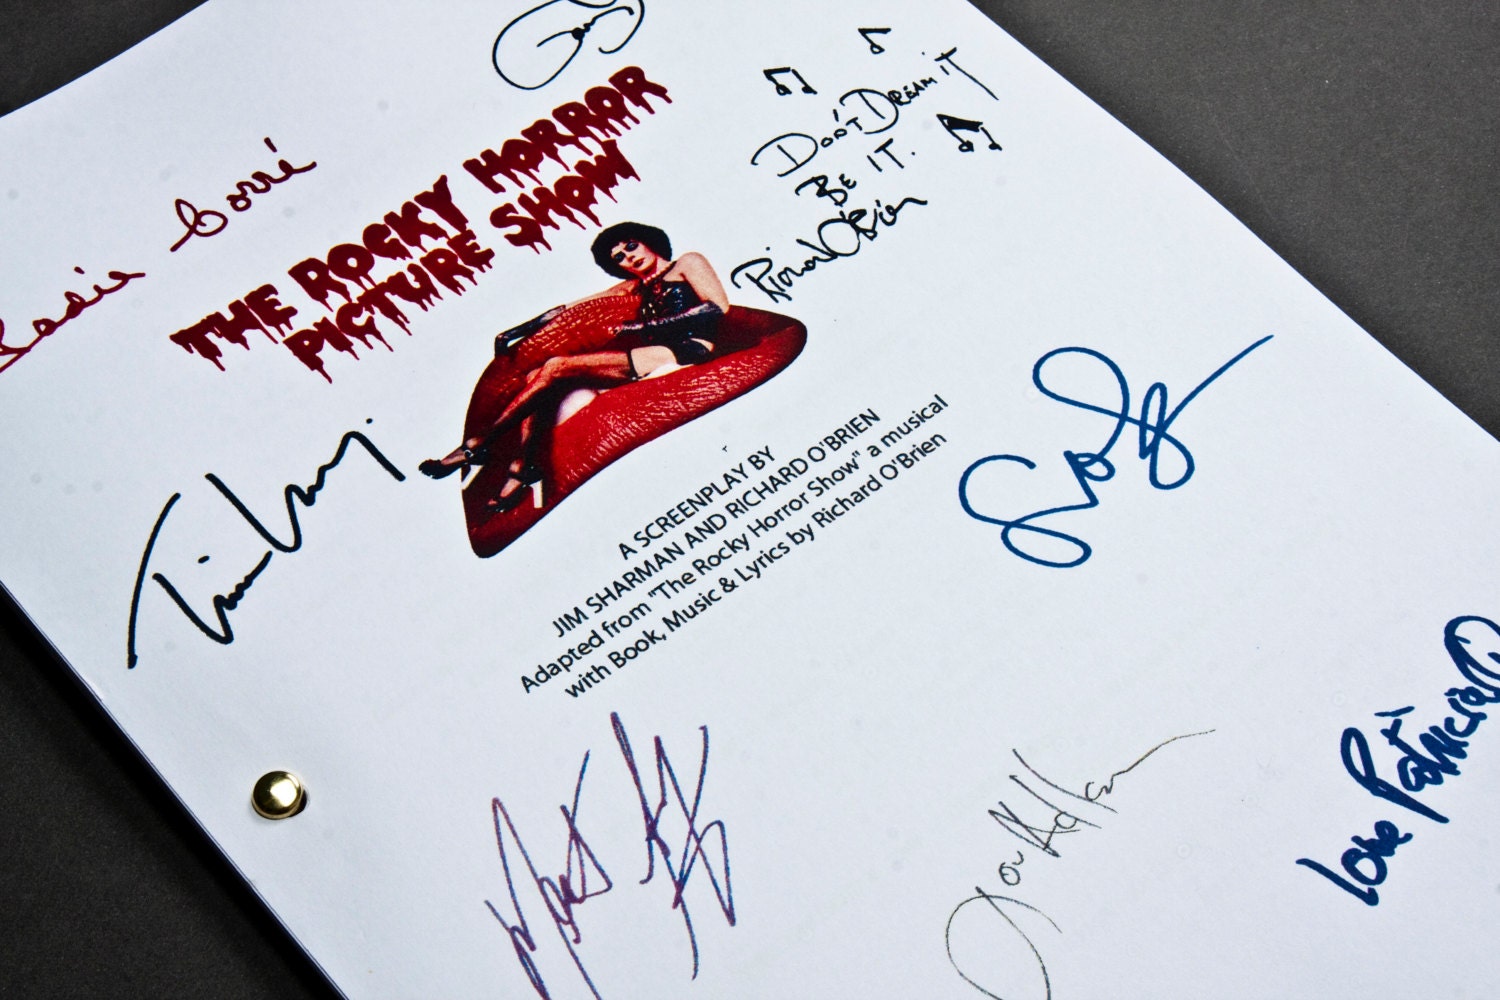 DON'T DREAM IT
BE IT.
RICHARD O'BRIEN
THE ROCKY HORROR
PICTURE SHOW
Tim Curry
A SCREENPLAY BY
JIM SHARMAN AND RICHARD O'BRIEN
Adapted from "The Rocky Horror Show" a musical
with Book, Music & Lyrics by Richard O'Brien
Meat
Love Patricia Q